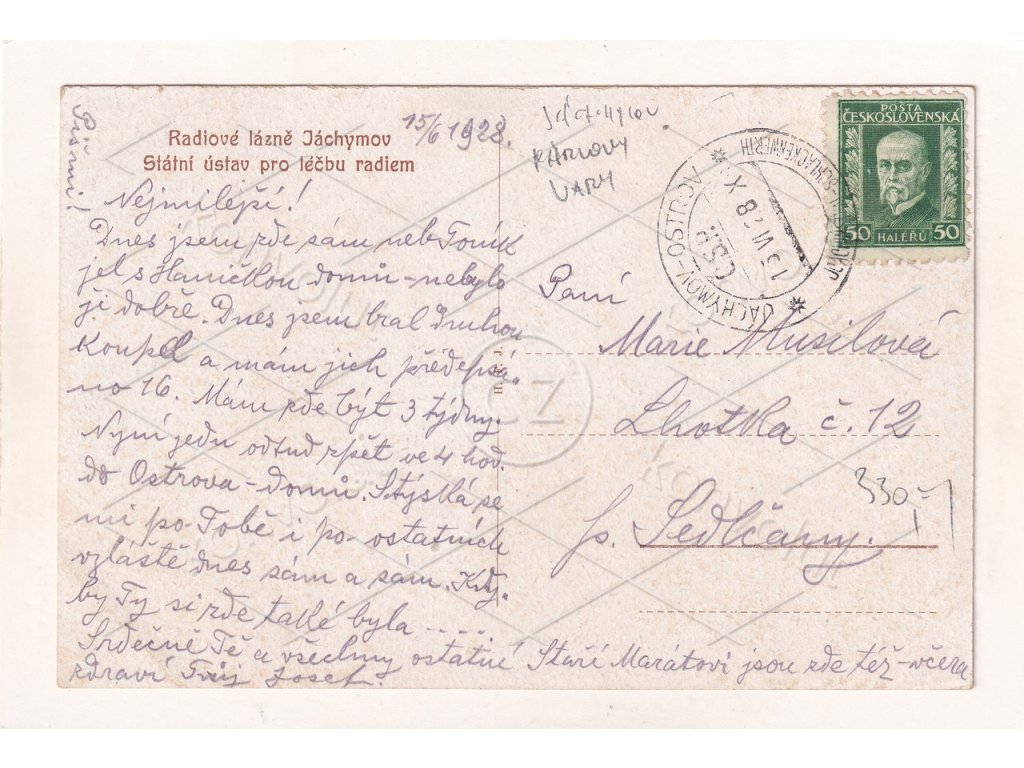 Radiové lázně Jáchymov
Státní ústav pro léčbu radiem
15/6 1928.
Nejmilejší!
Dnes jsem zde sám neb Toník
jel s Haničkou domů - nebylo
ji dobře. Dnes jsem bral druhou
Koupel a mám jich předepsá-
no 16. Mám zde být 3 týdny.
Nyní jedu odtud zpět ve 4 hod.
do Ostrova - domů. Stýská se
mi po Tobě i po ostatních
vzláště dnes sám a sám. Kdy-
by Ty si zde také byla .....
Srdečně Tě a všechny ostatné
zdraví Tvůj Josef.
Staří Marátovi jsou zde též - včera
Piš mi!
Jáchymov
KARLOVY
VARY
POŠTA
ČESKOSLOVENSKÁ
50 HALÉŘŮ 50
JÁCHYMOV-OSTROV
ČSR
15 VI 28 X
Paní
Marie Musilová
Lhotka č. 12
p. Sedlčany.
330,-